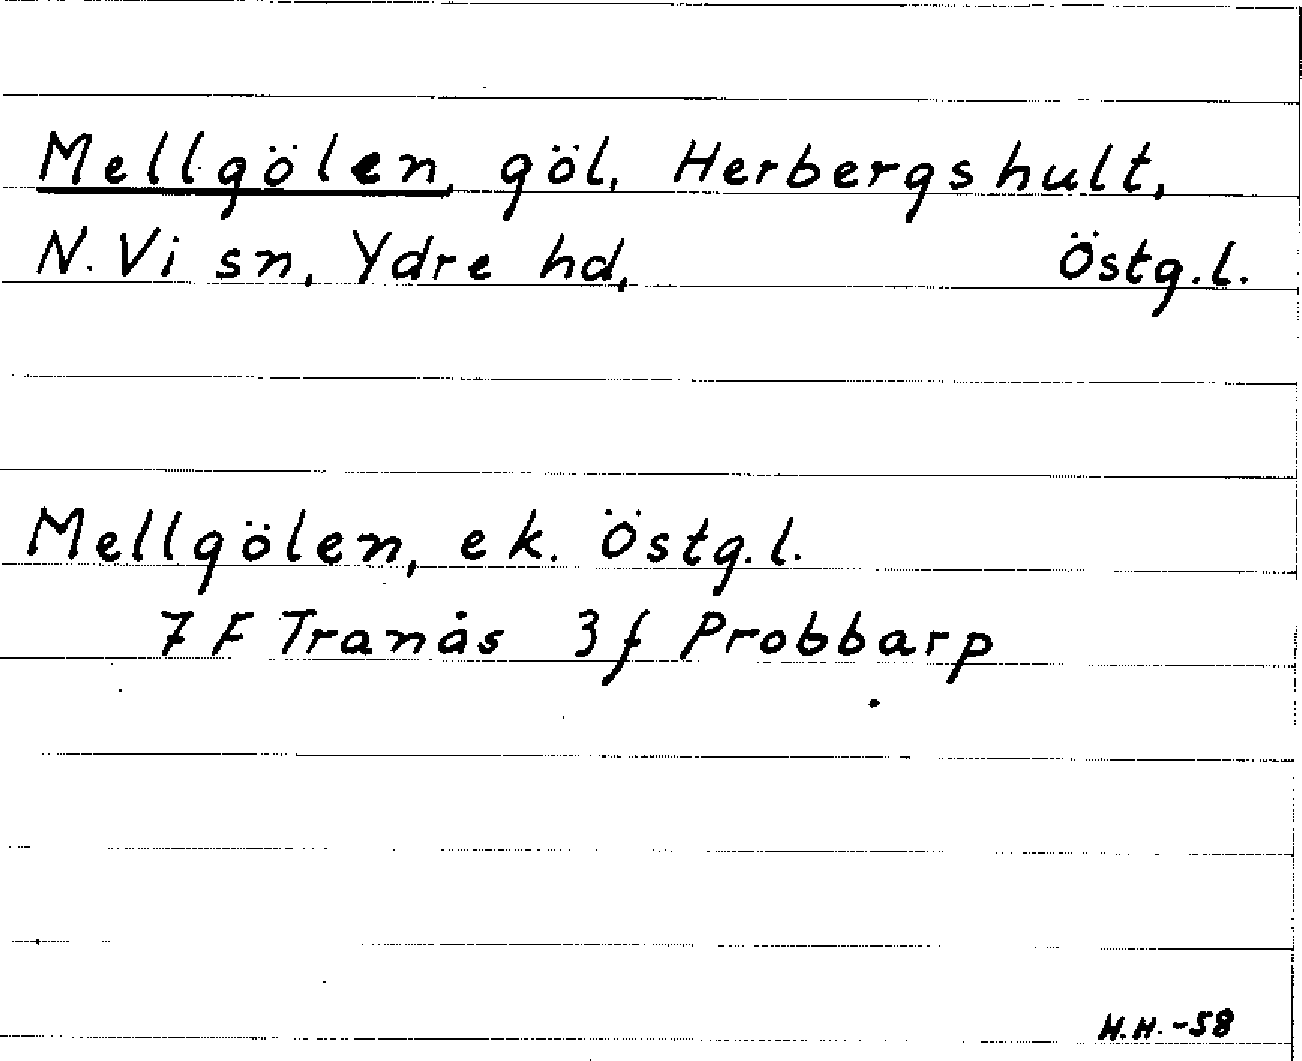 Mellgölen, göl, Herbergshult,
N. Vi sn, Ydre hd, Östg.l.
Mellgölen, ek. Östg.l.
7 F Tranås 3 f Probbarp
H.H. -58